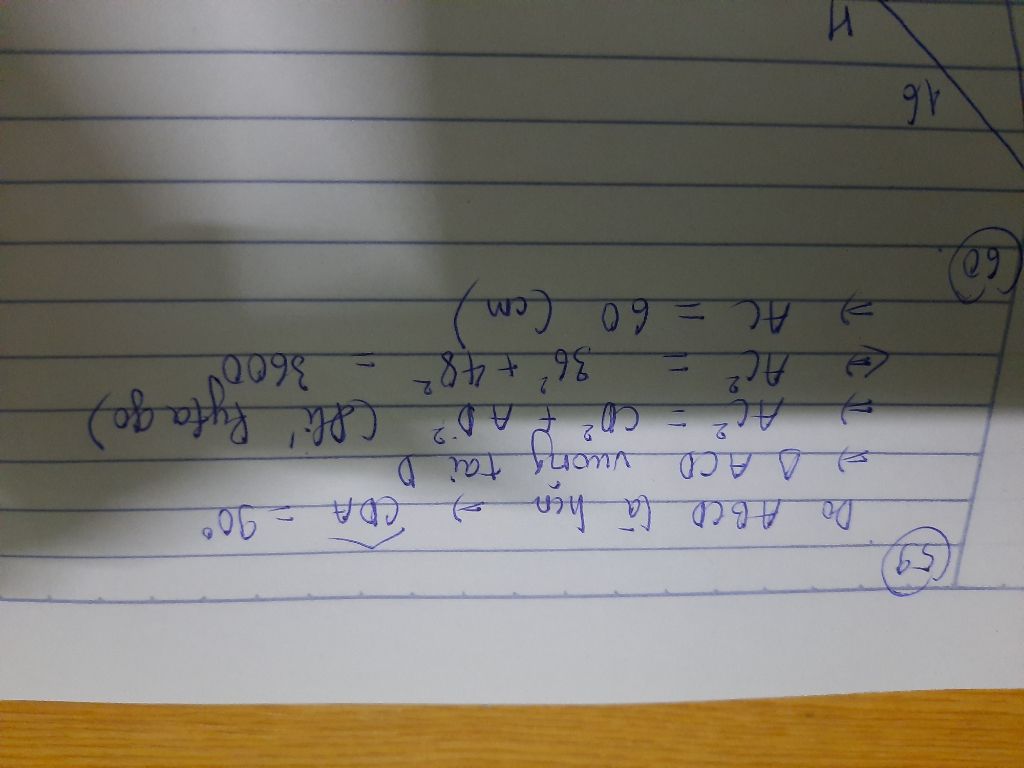 59
Do ABCD là hcn ⇒ CDA = 90°
⇒ Δ ACD vuông tại D
⇒ AC² = CD² + AD² (Đlí Pytago)
⇔ AC² = 36² + 48² = 3600
⇒ AC = 60 (cm)
60
16